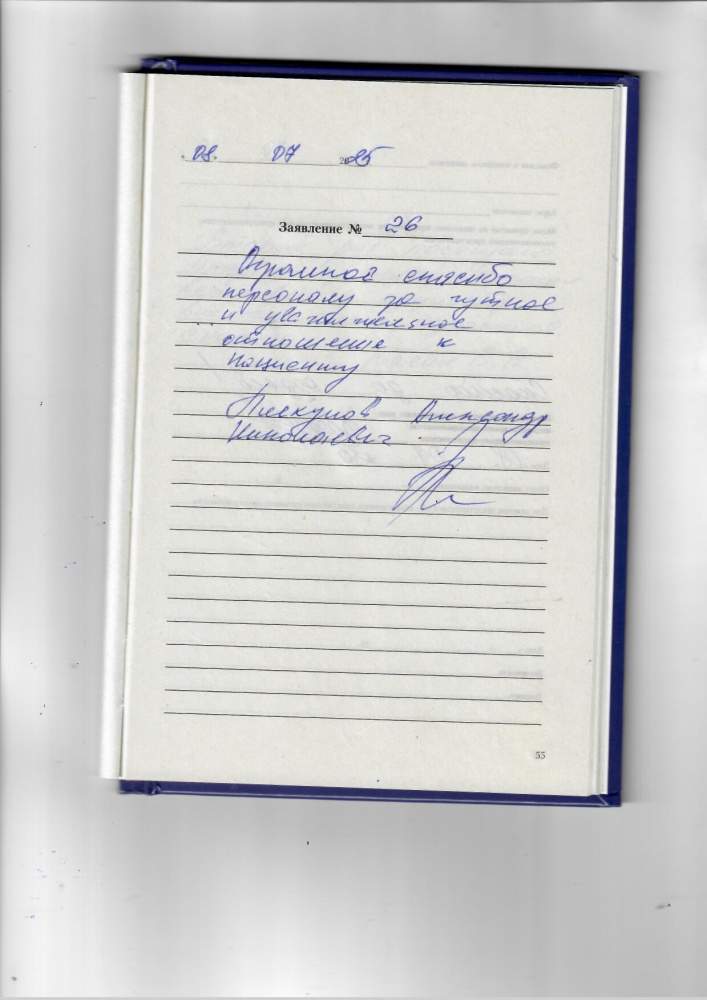 „08“ 07 2025
Заявление № 26
Огромное спасибо
персоналу за чуткое
и уважительное
отношение к
пациенту
Александр
Николаевич
55